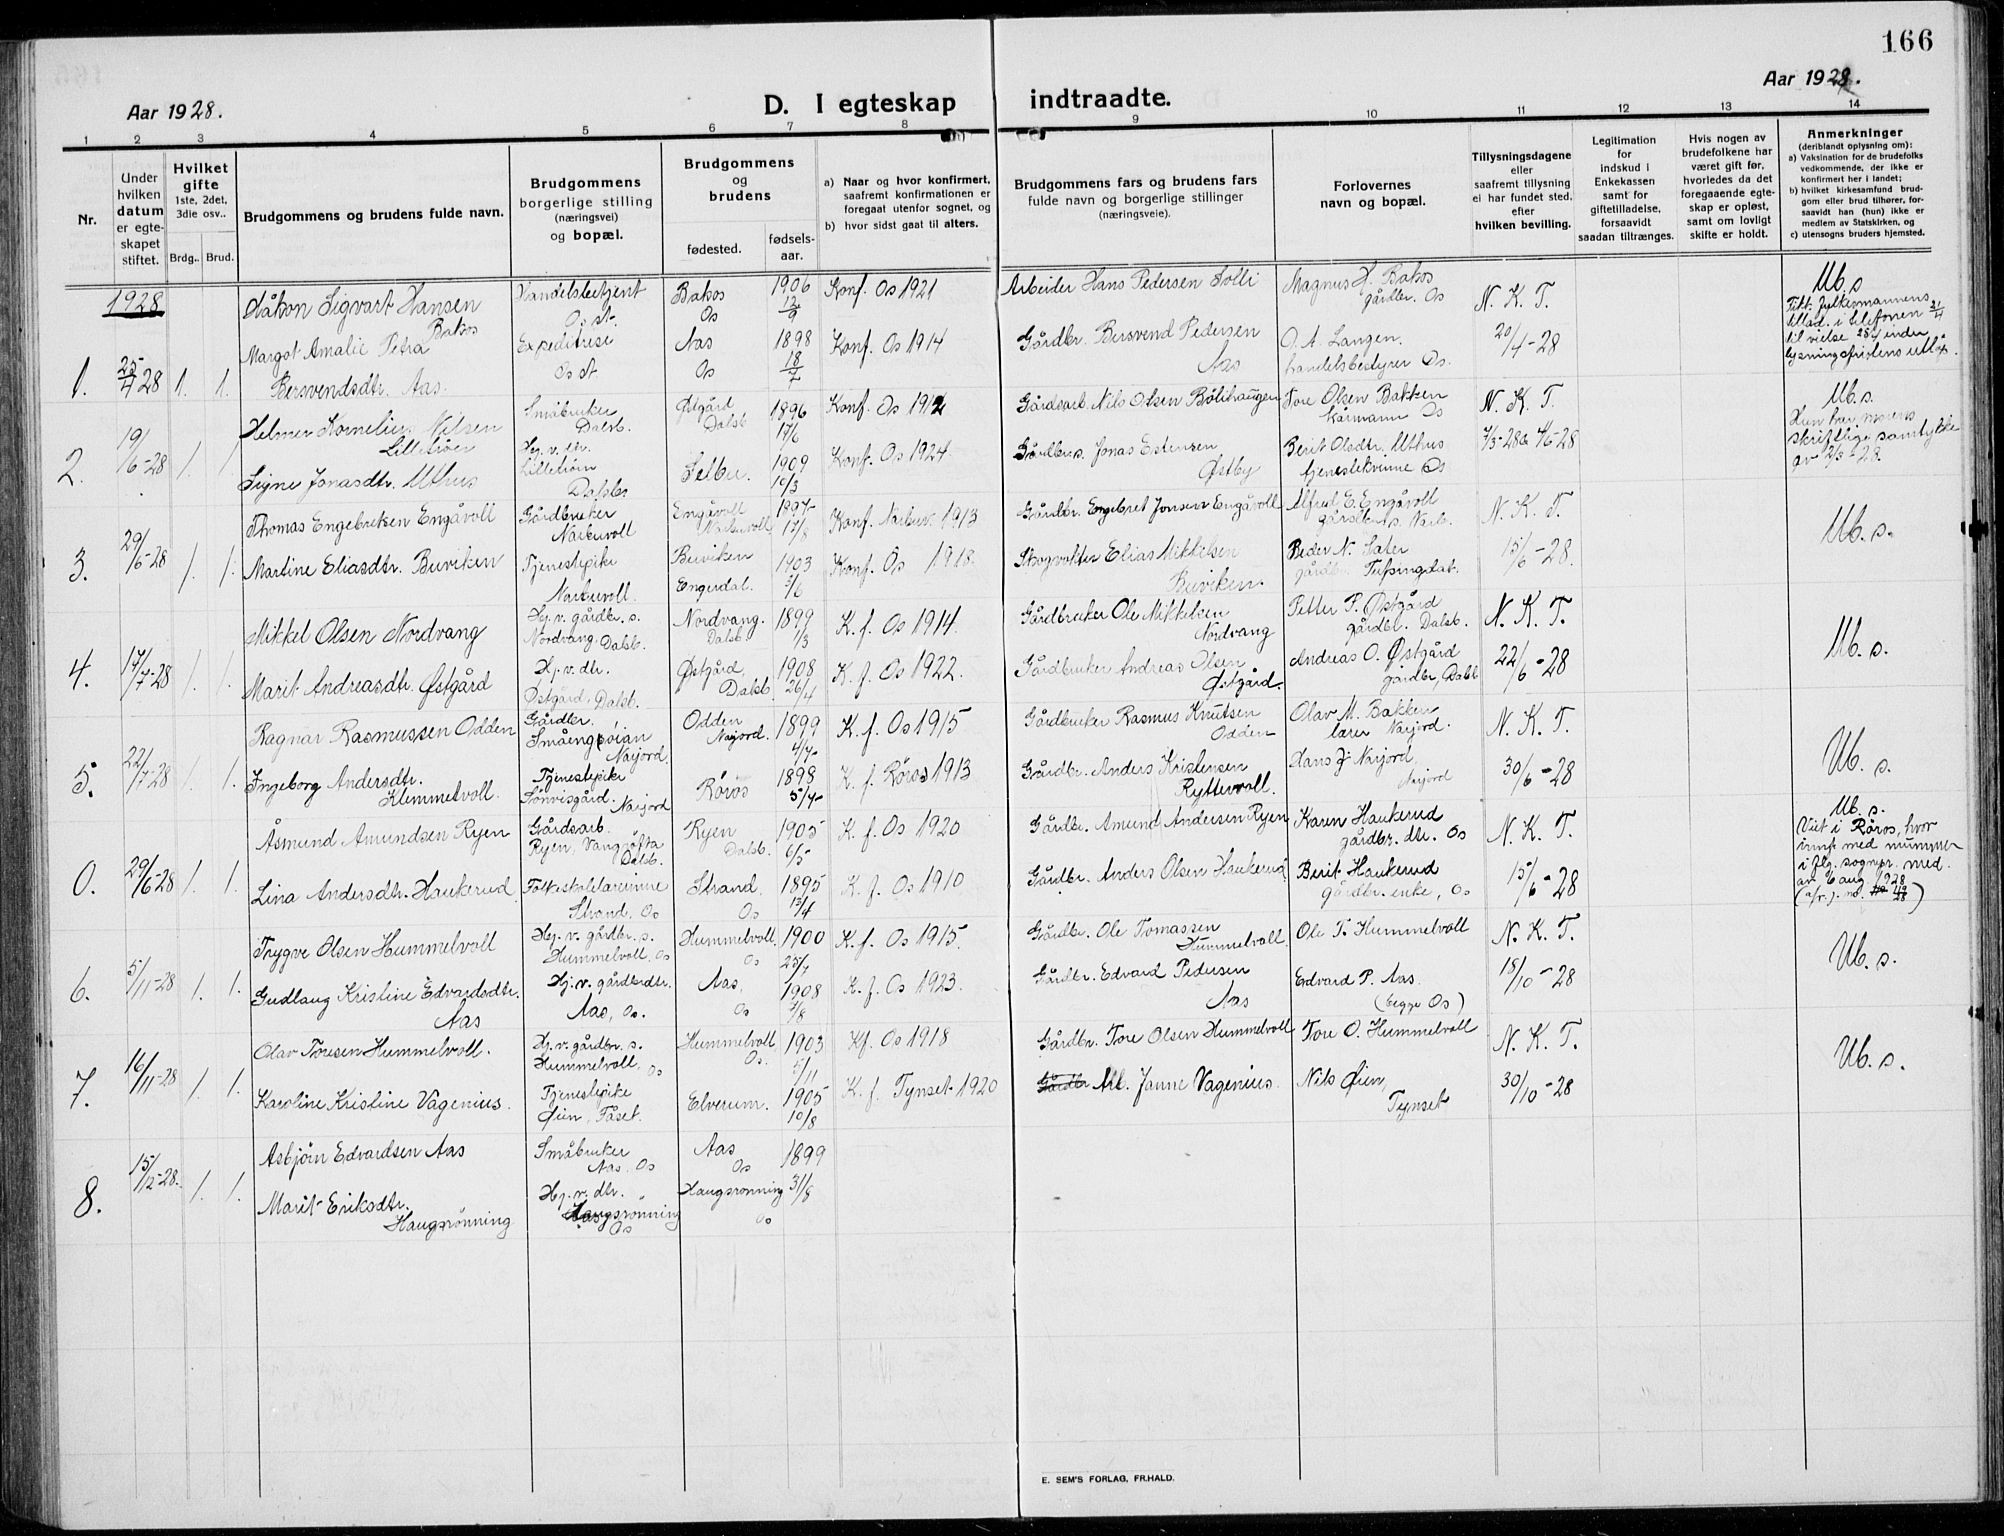 166
Aar 1928.
D. I egteskap indtraadte.
Aar 1928.
1 2 3 4 5 6 7 8 9 10 11 12 13 14
Nr.
Under hvilken datum er egteskapet stiftet.
Hvilket gifte
1ste, 2det, 3die osv..
Brdg.. Brud.
Brudgommens og brudens fulde navn.
Brudgommens borgerlige stilling (næringsvei) og bopæl.
Brudgommens og brudens
fødested. fødselsaar.
a) Naar og hvor konfirmert, saafremt konfirmationen er foregaat utenfor sognet, og
b) hvor sidst gaat til alters.
Brudgommens fars og brudens fars fulde navn og borgerlige stillinger (næringsveie).
Forlovernes navn og bopæl.
Tillysningsdagene eller saafremt tillysning ei har fundet sted, efter hvilken bevilling.
Legitimation for indskud i Enkekassen samt for giftetilladelse, forsaavidt saadan tiltrænges.
Hvis nogen av brudefolkene har været gift før, hvorledes da det foregaaende egteskap er opløst, samt om lovligt skifte er holdt.
Anmerkninger
(deriblandt oplysning om):
a) Vaksination for de brudefolks vedkommende, der ikke er konfirmert her i landet;
b) hvilket kirkesamfund brudgom eller brud tilhører, forsaavidt han (hun) ikke er medlem av Statskirken, og
c) utensogns bruders hjemsted.
1928
1. 25/4 28 1. 1.
Håkon Sigvart Hansen Bakos
Handelsbetjent Os st.
Bakos Os
1906 12/9
Konf. Os 1921
Arbeider Hans Pedersen Tolli
Magnus H. Bakos gårdbr. Os
N. K. T.
Ub. s
Margot Amalie Petra Bersvendsdtr. Aas.
Expeditrise Os st
Aas Os
1898 18/7
Konf. Os 1914
Gårdbr. Bersvend Pedersen Aas
O. A. Langen. handelsbestyrer Os.
20/4-28
2. 19/6-28 1. 1.
Helmer Kornelius Nilsen Lillebøen
Småbruker Dalsb.
Østgård Dalsb
1896 17/6
Konf. Os 1912
Gårdsarb. Nils Olsen Bölihaugen
Tore Olsen Bakken Os
N. K. T.
Ub. s.
Hun har morens skriftlige samtykke av 12/5-28.
Signe Jonasdtr. Uthus
Hj. v. dtr. Dalsb
Selbu.
1909 10/3
Konf. Os 1924
Jonas Estensen Østby
Berit Olsdtr. Uthus tjenestekvinne Os
3. 29/6-28 1. 1.
Thomas Engebretsen Engåvoll
Gårdbruker Narbuvoll
Engåvoll Narbuvoll
1897 17/8
Konf. Narbuv. 1913
Gårdbr. Engebret Jonsen Engåvoll
Alfred E. Engåvoll gårdbr. s. Narb.
N. K. T.
Ub. s.
Martine Eliasdtr. Buviken
Tjenestepike Narbuvoll.
Buviken Engerdal.
1903 3/6
Konf. Os 1918.
Skogvokter Elias Mikkelsen Buviken.
Peder N. Sater gårdbr. Tufsingdal.
15/6-28.
4. 17/7-28 1. 1.
Mikkel Olsen Nordvang
Hj. v. gårdbr. s. Nordvang. Dalsb.
Nordvang. Dalsb
1899 1/3
K. f. Os 1914.
Gårdbruker Ole Mikkelsen Nordvang
Petter P. Østgård gårdbr. Dalsb.
N. K. T.
Ub. s.
Marit Andreasdtr. Østgård
Hj. v. dtr. Østgård, Dalsb.
Østgård, Dalsb
1908 26/4
K. f. Os 1922.
Gårdbruker Andreas Olsen Østgård.
Andreas O. Østgård gårdbr, Dalsb
22/6-28
5. 22/7-28 1. 1.
Ragnar Rasmussen Odden
Gårdbr. Småengsöian Narjord
Odden Narjord.
1899 4/4
K. f. Os 1915
Gårdbruker Rasmus Knutsen Odden
Olav M. Bakken lærer Narjord.
N. K. T.
Ub. s.
Ingeborg Andersdtr. Klemmetvoll.
Tjenestepike Tönvisgård. Narjord
Röros
1898 5/4
K. f. Röros 1913
Gårdbr. Anders Kristensen Ryttervoll.
Hans J Narjord, Narjord
30/6-28
0. 29/6-28 1. 1.
Åsmund Amundsen Ryen
Gårdsarb. Ryen, Vangröfta Dalsb.
Ryen Dalsb.
1905 6/5
K. f. Os 1920
Gårdbr. Amund Andersen Ryen
Karen Haukerud gårdbr. dtr. Os
N. K. T.
Ub. s.
Viet i Röros, hvor innf. med nummer i flg. sognepr. med. av 6 aug 1928
Lina Andersdtr. Haukerud
Folkeskolelærerinne Strand, Os
Strand. Os
1895 13/4
K. f. Os 1910
Gårdbr. Anders Olsen Haukerud
Berit Haukerud gårdbr. enke, Os
15/6-28
6. 5/11-28 1. 1.
Trygve Olsen Hummelvoll
Hj. v. gårdbr. s. Hummelvoll. Os
Hummelvoll. Os
1900 25/7
K. f. Os 1915.
Gårdbr. Ole Tomassen Hummelvoll
Ole T. Hummelvoll
N. K. T.
Ub. s.
Gudlaug Kristine Edvardsdtr. Aas
Hj. v. gårdbrdtr. Aas, Os.
Aas. Os
1908 7/8
K. f. Os 1923.
Gårdbr. Edvard Pedersen Aas
Edvard P. Aas. (begge Os)
18/10-28
7. 16/11-28 1. 1.
Olav Toresen Hummelvoll.
Hj. v. gårdbr. s. Hummelvoll. Os
Hummelvoll Os.
1903 5/11
Kf. Os 1918
Gårdbr. Tore Olsen Hummelvoll
Tore O. Hummelvoll
N. K. T.
Ub. s.
Karoline Kristine Vagenius.
Tjenestepike Øien, Fåset.
Elverum.
1905 10/8
K. f. Tynset 1920
Gårdbr Arb. Janne Vagenius.
Nils Øien, Tynset
30/10-28
8. 15/12-28. 1. 1.
Asbjörn Edvardsen Aas
Småbruker Aas. Os
Aas Os
1899 31/8
Marit Eriksdtr. Haugsrønning
Hj. v. dtr. Haugsrønning Os
Haugsrønning Os
E. SEM'S FORLAG, FR.HALD.